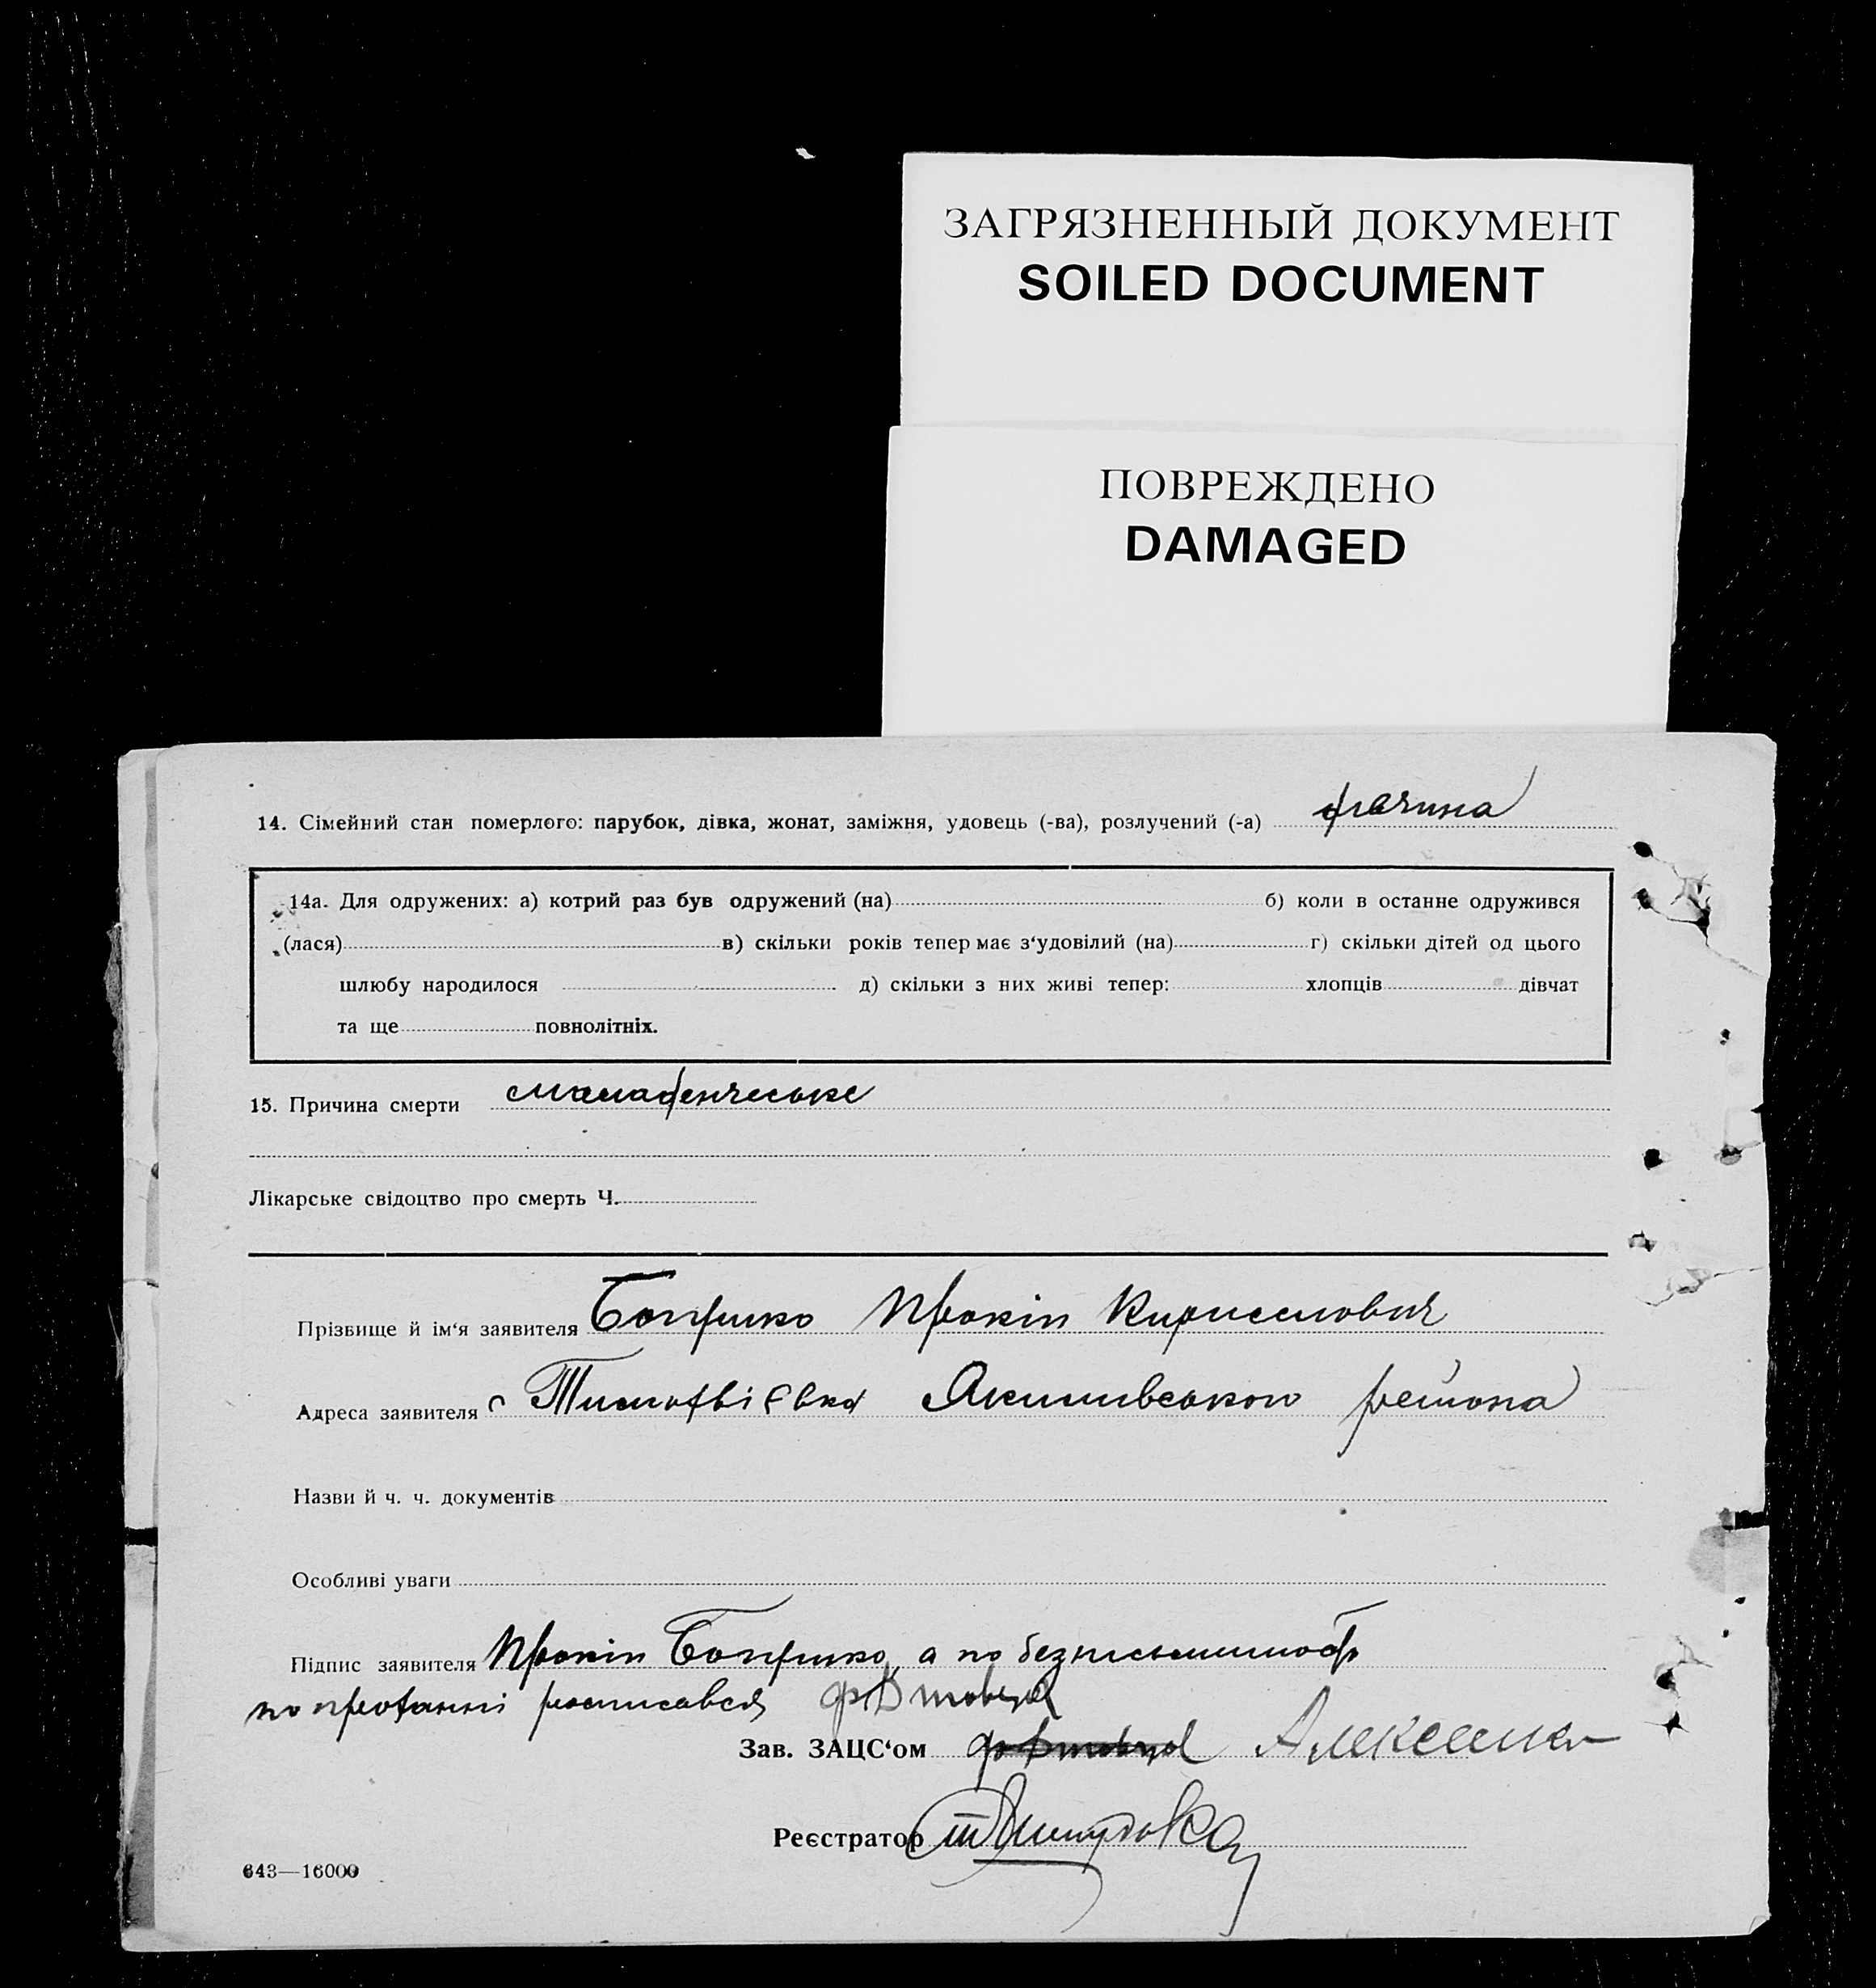 ЗАГРЯЗНЕННЫЙ ДОКУМЕНТ
SOILED DOCUMENT
ПОВРЕЖДЕНО
DAMAGED
14. Сімейний стан померлого: парубок, дівка, жонат, заміжня, удовець (-ва), розлучений (-а)
14а. Для одружених: а) котрий раз був одружений (на) б) коли в останне одружився
(лася) в) скільки років тепер має з‘удовілий (на) г) скільки дітей од цього
шлюбу народилося д) скільки з них живі тепер: хлопців дівчат
та ще повнолітніх.
15. Причина смерти
Лікарське свідоцтво про смерть Ч.
Прізбище й ім‘я заявителя Прокіп Кирилович
Адреса заявителя с Тимофвієвка Якимивського района
Назви й ч. ч. документів
Особливі уваги
Підпис заявителя Прокіп а по
по расписався
Зав. ЗАЦС‘ом
Реєстратор
643—16000